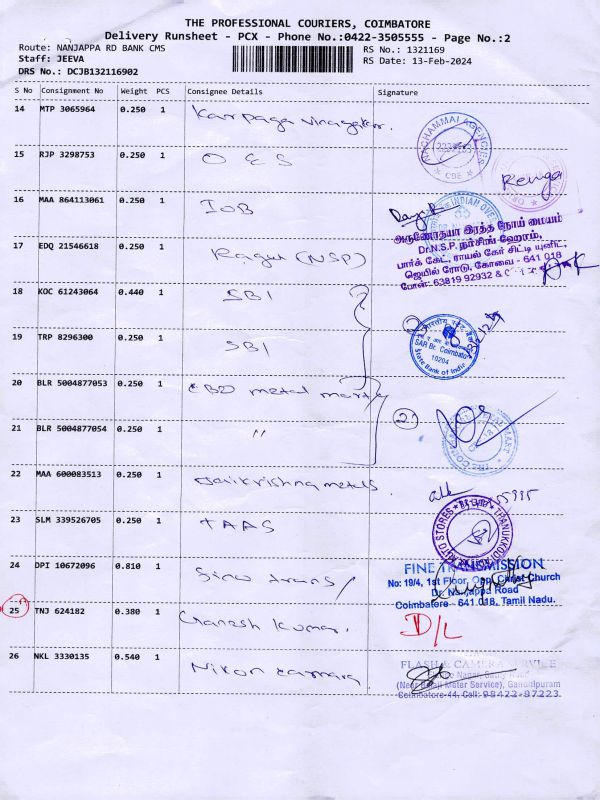 THE PROFESSIONAL COURIERS, COIMBATORE
Delivery Runsheet - PCX - Phone No.:0422-3505555 - Page No.:2
Route: NANJAPPA RD BANK CMS
RS No.: 1321169
Staff: JEEVA
RS Date: 13-Feb-2024
DRS No.: DCJB132116902
S No Consignment No Weight PCS Consignee Details Signature
14 MTP 3065964 0.250 1 Karpaga Vinayakar.
NACHAMMAI AGENCIES
CBE
15 RJP 3298753 0.250 1 O E S
Renga
16 MAA 864113061 0.250 1 IOB
அருணோதயா இரத்த நோய் மையம்
Dr.N.S.P. நர்சிங் ஹோம்,
17 EDQ 21546618 0.250 1 Ragu (NSP)
பார்க் கேட், ராயல் கேர் சிட்டி யுனிட்,
ஜெயில் ரோடு, கோவை - 641 018
போன்: 63819 92932 &
18 KOC 61243064 0.440 1 SBI
2
SAR Br. Coimbatore
10204
State Bank of India
19 TRP 8296300 0.250 1 SBI
20 BLR 5004877053 0.250 1 metal mart
2
21 BLR 5004877054 0.250 1 "
22 MAA 600083513 0.250 1 Harikrishna metals
AUTO STORES
23 SLM 339526705 0.250 1 TAAS
24 DPI 10672096 0.810 1 trans
FINE TRANSMISSION
No: 19/4, 1st Floor, Opp. Christ Church
Dr. Nanjappa Road
Coimbatore - 641 018, Tamil Nadu.
25 TNJ 624182 0.380 1 Ganesh Kumar.
D/L
26 NKL 3330135 0.540 1 Nikon camera
FLASH & CAMERA SERVICE
(Near Balaji Meter Service), Gandhipuram
Coimbatore-44, Cell: 98422-87223